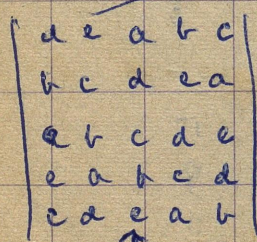 d e a b c
b c d e a
a b c d e
e a b c d
c d e a b